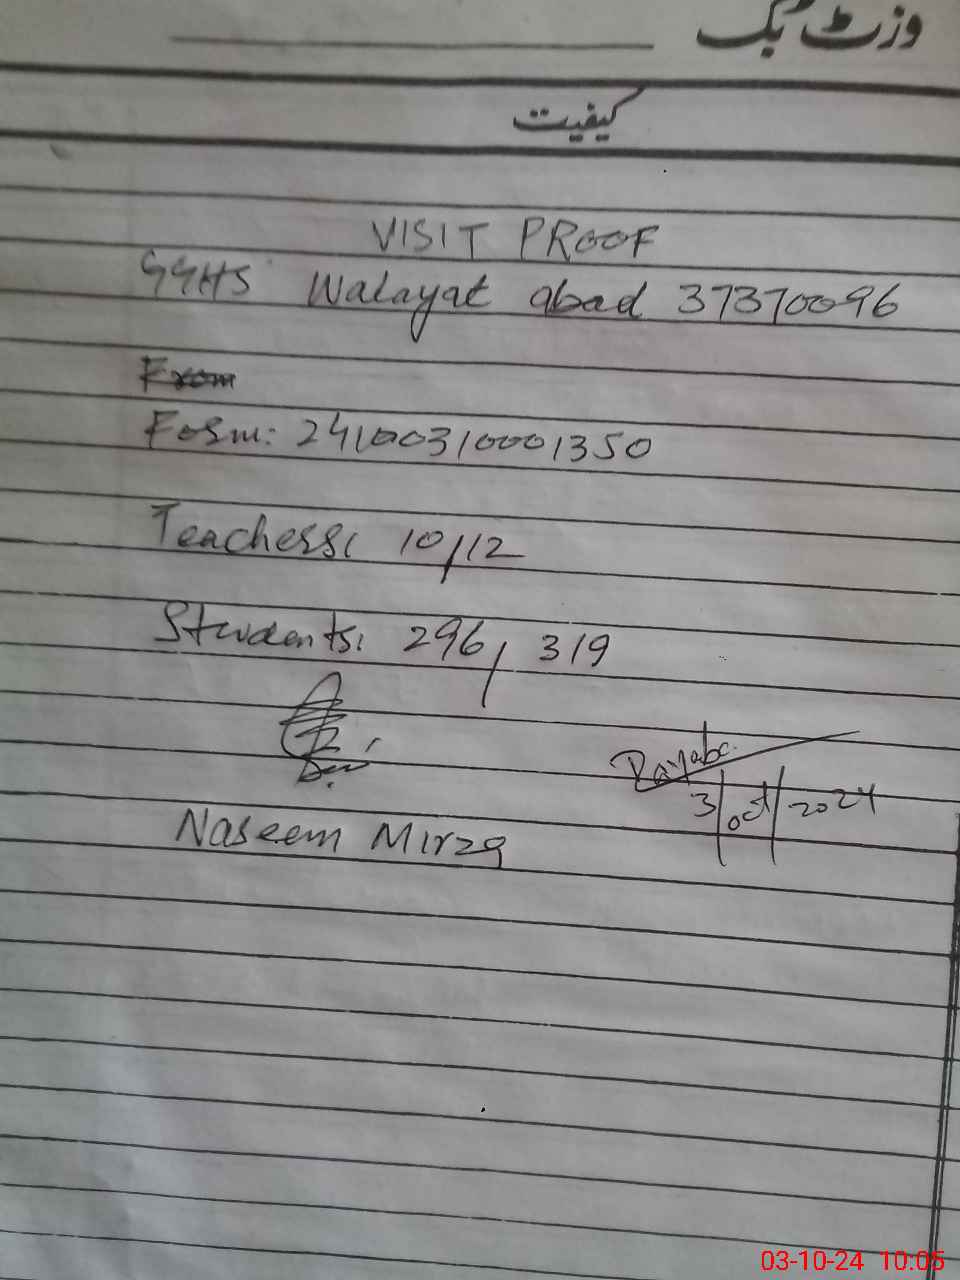 وزٹ بک
کیفیت
VISIT PROOF
GGHS Walayat abad 37370096
From
Form: 24100310001350
Teachers: 10/12
Students: 296/319
3/oct/2024
Naseem Mirza
03-10-24 10:05